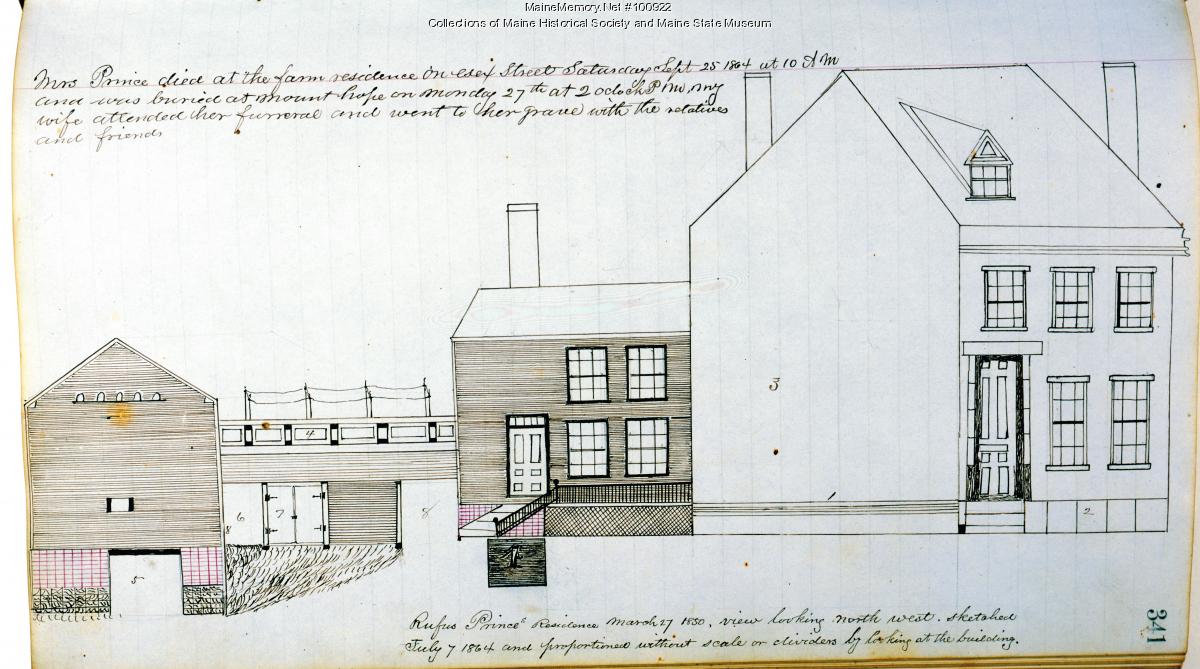 MaineMemory.Net #100922
Collections of Maine Historical Society and Maine State Museum
Mrs Prince died at the farm residence on esex Street Saturday Sept 25 1864 at 10 A M
and was buried at mount hope on monday 27th at 2 oclock P M, my
wife attended her furneral and went to her grave with the relatives
and friends
3
4
6
7
8
8
5
1
2
Rufus Princes Residence March 27 1850, view looking north west. sketched
July 7 1864 and proportioned without scale or dividers by looking at the building.
341